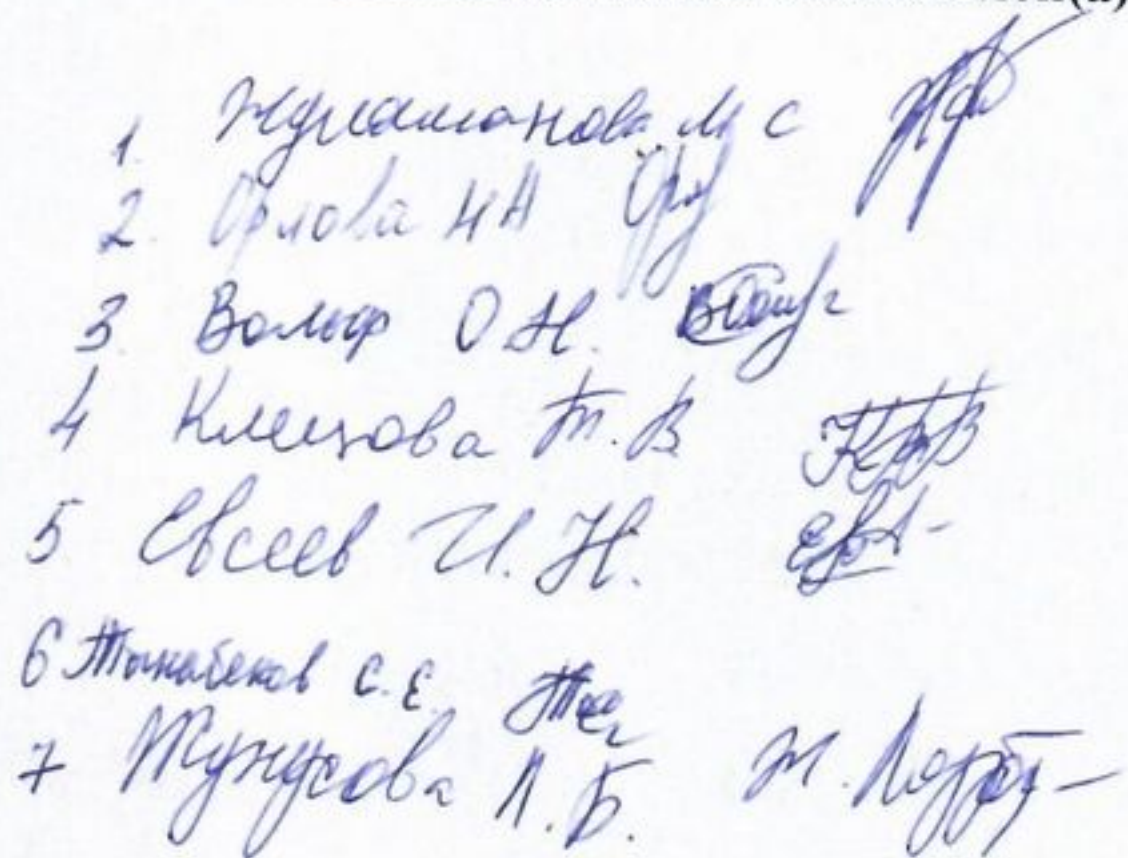 1. Жумаманова М С
2. Орлова Н А
3. Вольф О Н.
4 Клецова Т. В
5 Евсеев И. Н.
6 Тынабеков С. Е.
7 Жунусова Л. Б.